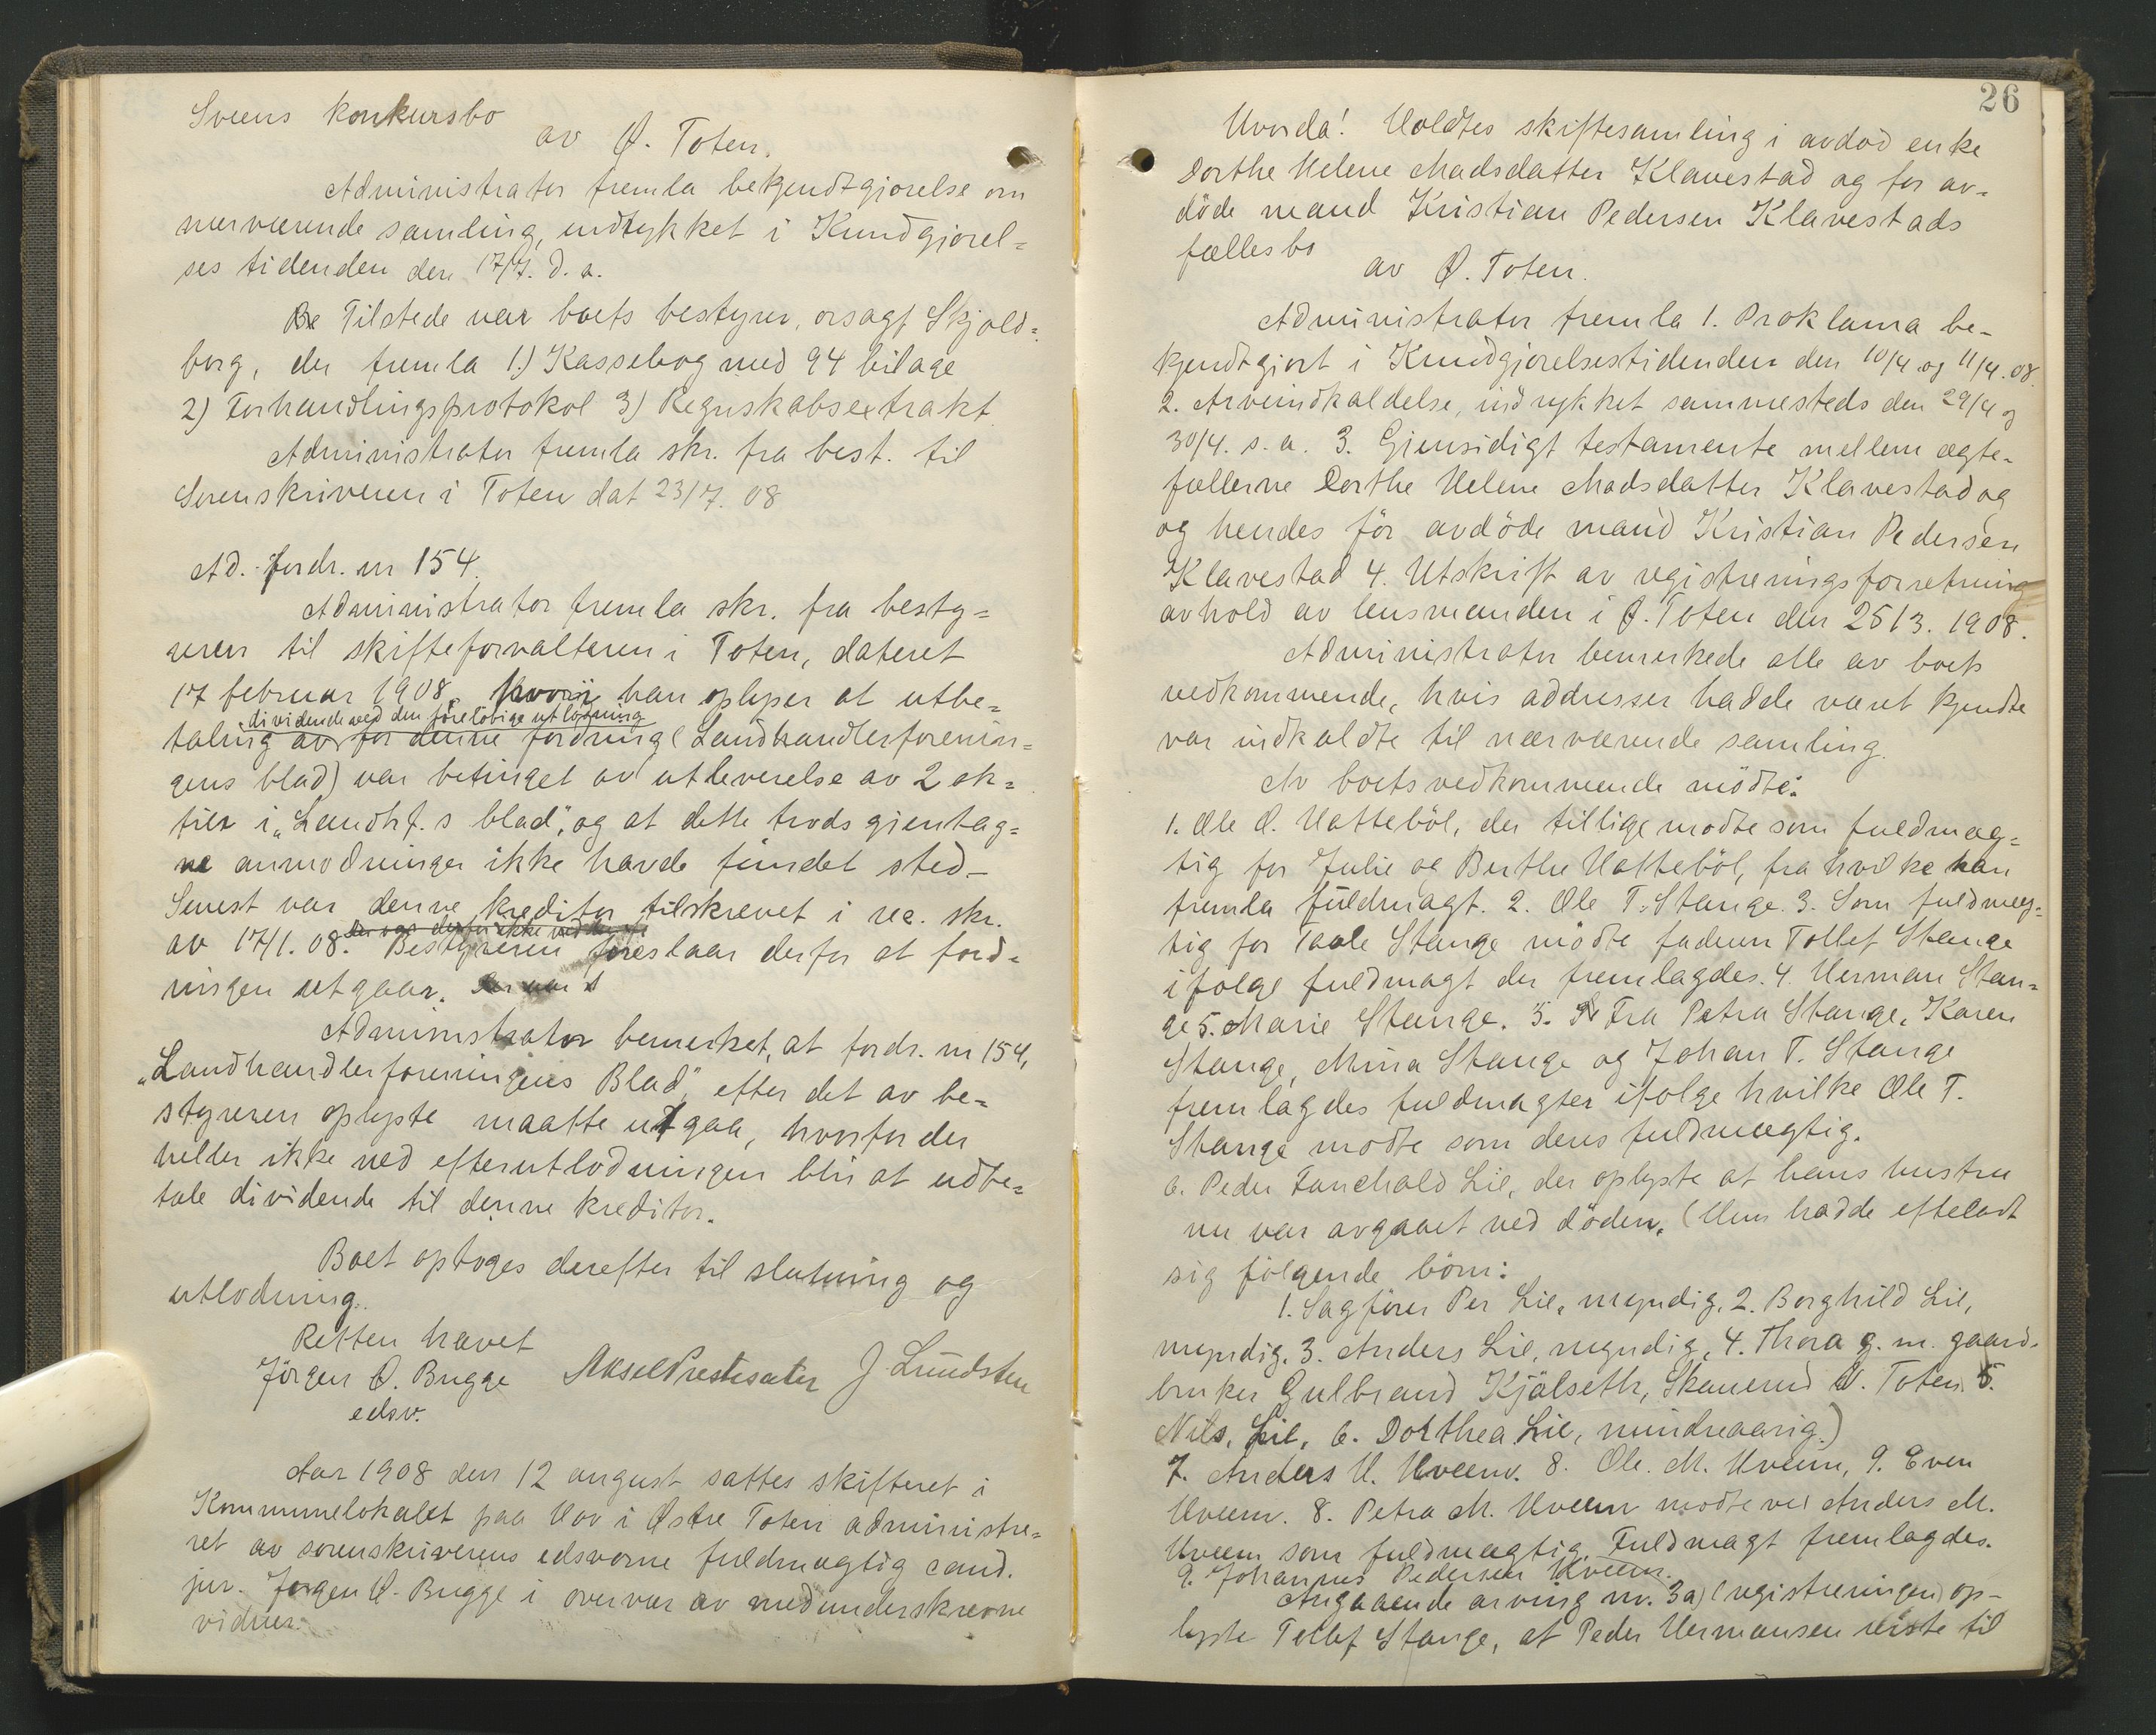 Sveens konkursbo
av Ø. Toten.
Administrator fremla bekjendtgjørelse om
nærværende samling, indrykket i Kundgjørel=
ses tidenden den 17/7. d. a.
Tilstede var boets bestyrer, orsagf Skjold=
borg, der fremla 1.) Kassebog med 94 bilage
2) Forhandlingsprotokol 3) Regnskabsextrakt
Administrator fremla skr. fra best. til
Sorenskriveren i Toten dat 23/7. 08
Ad. fordr. nr 154.
Administrator fremla skr. fra besty=
reren til skifteforvalteren i Toten, dateret
17 februar 1908, hvori han oplyser at utbe=
dividende ved den foreløbige utlodning
taling av for denne fordring (Landhandlerforenin=
gens blad) var betinget av utleverelse av 2 ak=
tier i „Landhf.s blad", og at dette trods gjentag=
ne anmodninger ikke havde fundet sted-
Senest var denne kreditor tilskrevet i rec. skr.
av 17/1. 08. Bestyreren foreslaar derfor at ford=
ringen utgaar.
Administrator bemerket, at fordr. nr 154,
„Landhandlerforeningens Blad", efter det av be=
styreren oplyste maatte utgaa, hvorfor der
heller ikke ved efterutlodningen blir at udbe=
tale dividende til denne kreditor.
Boet optoges derefter til slutning og
utlodning.
Retten hævet
Jörgen Ø. Bugge Aksel Prestesæter J. Lundsten
edsv.
Aar 1908 den 12 august sattes skifteret i
Kommunelokalet paa Hov i Østre Toten administre=
ret av sorenskriverens edsvorne fuldmægtig cand.
jur. Jørgen Ø. Bugge i overvær av medunderskrevne
vidner.
26
Hvorda! Holdtes skiftesamling i avdød enke
Dorthe Helene Madsdatter Klavestad og før av-
döde mand Kristian Pedersen Klavestads
fællesbo
av Ø. Toten.
Administrator fremla 1. Proklama be-
kjendtgjort i Kundgjørelsestidenden den 10/4 og 11/4. 08.
2. Arveindkaldelse, indrykket sammesteds den 29/4 og
30/4. s. a. 3. Gjensidigt testamente mellem ægte-
fællerne Dorthe Helene Madsdatter Klavestad og
og hendes för avdöde mand Kristian Pedersen
Klavestad 4. Utskrift av registreringsforretning
avhold av lensmanden i Ø. Toten den 25/3. 1908.
Administrator bemerkede alle av boets
vedkommende, hvis addresser hadde været kjendte
var indkaldte til nærværende samling.
Av boets vedkommende mödte:
1. Ole O. Hatteböl, der tillige mødte som fuldmæg=
tig for Julie og Berthe Hatteböl, fra hvilke han
fremla fuldmagt. 2. Ole T. Stange. 3. Som fuldmæg=
tig for Taale Stange mödte faderen Tollef Stange
ifølge fuldmagt der fremlagdes. 4. Herman Stan=
ge 5. Marie Stange. 5. Fra Petra Stange, Karen
Stange, Mina Stange og Johan T. Stange
fremlagdes fuldmagter ifølge hvilke Ole T.
Stange mødte som deres fuldmægtig.
6. Peder Lie, der oplyste at hans hustru
nu var avgaaet ved döden. (Hun hadde efterladt
sig følgende börn:
1. Sagfører Per Lie, myndig, 2. Borghild Lie,
myndig. 3. Anders Lie, myndig, 4. Thora g. m. gaard-
bruker Gulbrand Kjölseth, V. Toten 5.
Nils, Lie, 6. Dorthea Lie, mindreaarig.)
7. Anders M. Hveem. 8. Ole. M. Hveem, 9. Even
Hveem. 8. Petra M. Hveem mødte ved Anders M.
Hveem som fuldmægtig. Fuldmagt fremlagdes.
9. Johannes Pedersen Hveem.
Angaaende arving nr. 3a) (registreringen) op-
lyste Tollef Stange, at Peder Hermansen reiste til